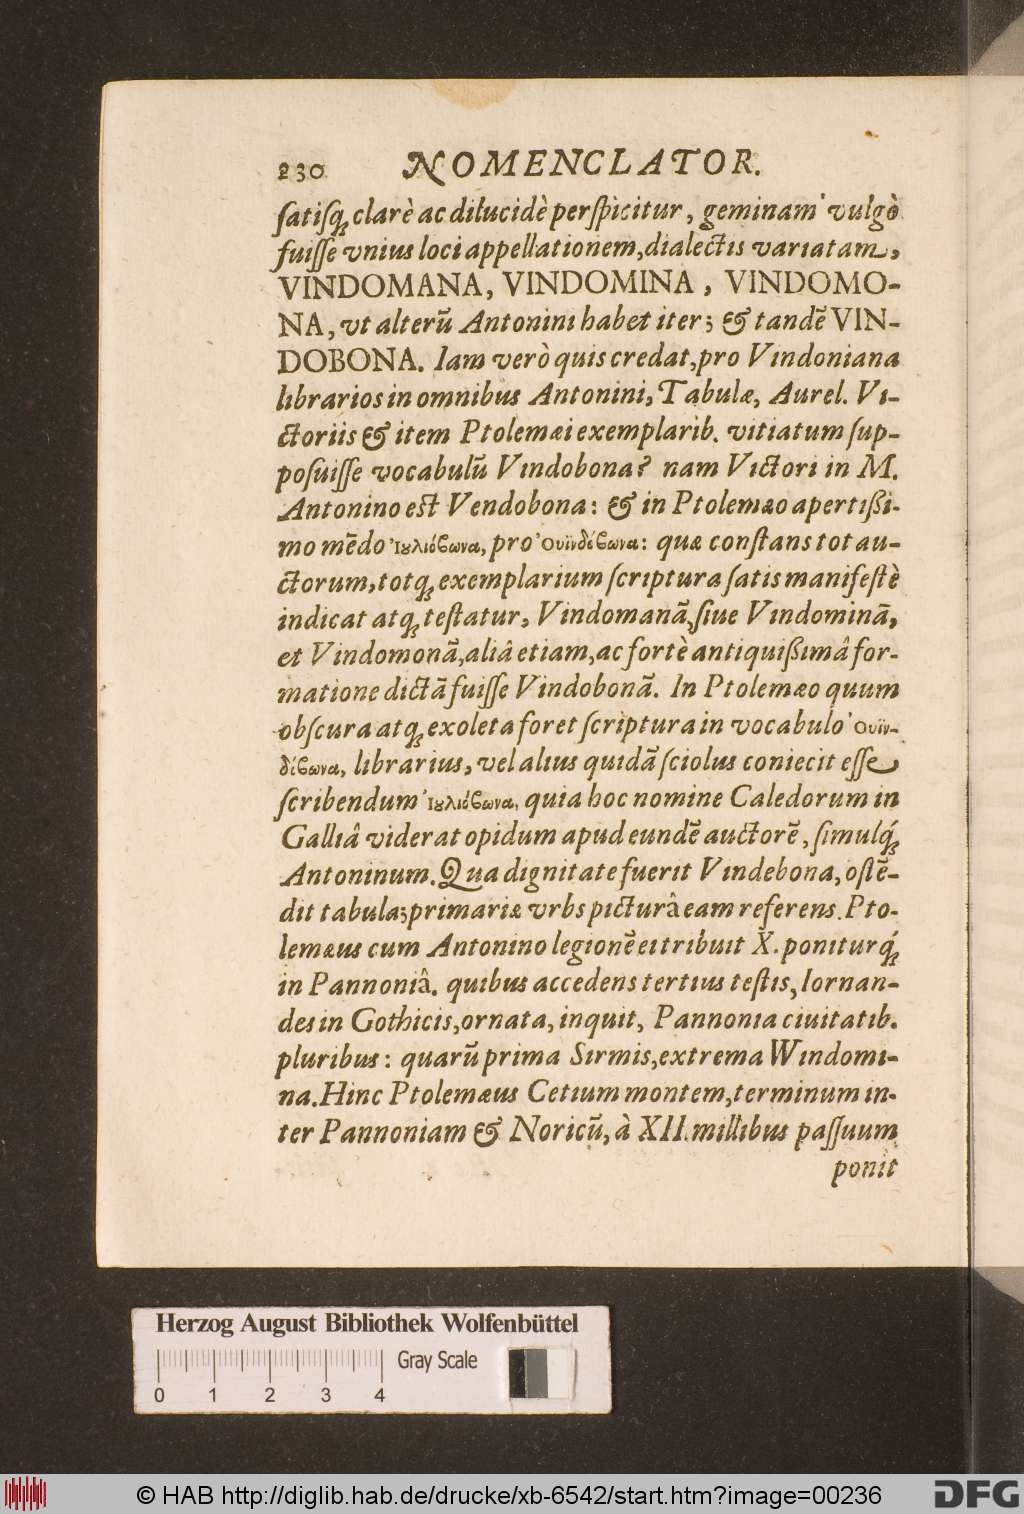 230 NOMENCLATOR.
ſatiſq́ꝫ clarè ac dilucidè perſpicitur, geminam vulgò
fuiſſe vnius loci appellationem, dialectis variatam,
VINDOMANA, VINDOMINA, VINDOMO-
NA, vt alterū Antonini habet iter; & tandē VIN-
DOBONA. Iam verò quis credat, pro Vindoniana
librarios in omnibus Antonini, Tabulæ, Aurel. Vi-
ctoriis & item Ptolemæi exemplarib. vitiatum ſup-
poſuiſſe vocabulū Vindobona? nam Victori in M.
Antonino eſt Vendobona: & in Ptolemæo apertißi-
mo mēdo Ἰȣλιόβωνα, pro Ὀυϊνδέβωνα: quæ conſtans tot au-
ctorum, totqꝫ exemplarium ſcriptura ſatis manifeſtè
indicat atqꝫ teſtatur, Vindomanā, ſiue Vindominā,
et Vindomonā, aliâ etiam, ac fortè antiquißimâ for-
matione dictā fuiſſe Vindobonā. In Ptolemæo quum
obſcura atqꝫ exoleta foret ſcriptura in vocabulo Ὀυϊν-
δέβωνα, librarius, vel alius quidā ſciolus coniecit eſſe
ſcribendum Ἰȣλιόβωνα, quia hoc nomine Caledorum in
Galliâ viderat opidum apud eundē auctorē, ſimulq́ꝫ
Antoninum. Qua dignitate fuerit Vindebona, oſtē-
dit tabula; primariæ vrbs picturâ eam referens. Pto-
lemæus cum Antonino legionē ei tribuit X. poniturq́ꝫ
in Pannoniâ. quibus accedens tertius teſtis, Iornan-
des in Gothicis, ornata, inquit, Pannonia ciuitatib.
pluribus: quarū prima Sirmis, extrema Windomi-
na. Hinc Ptolemæus Cetium montem, terminum in-
ter Pannoniam & Noricū, à XII. millibus paſſuum
ponit
Herzog August Bibliothek Wolfenbüttel
Gray Scale
0 1 2 3 4
© HAB http://diglib.hab.de/drucke/xb-6542/start.htm?image=00236
DFG